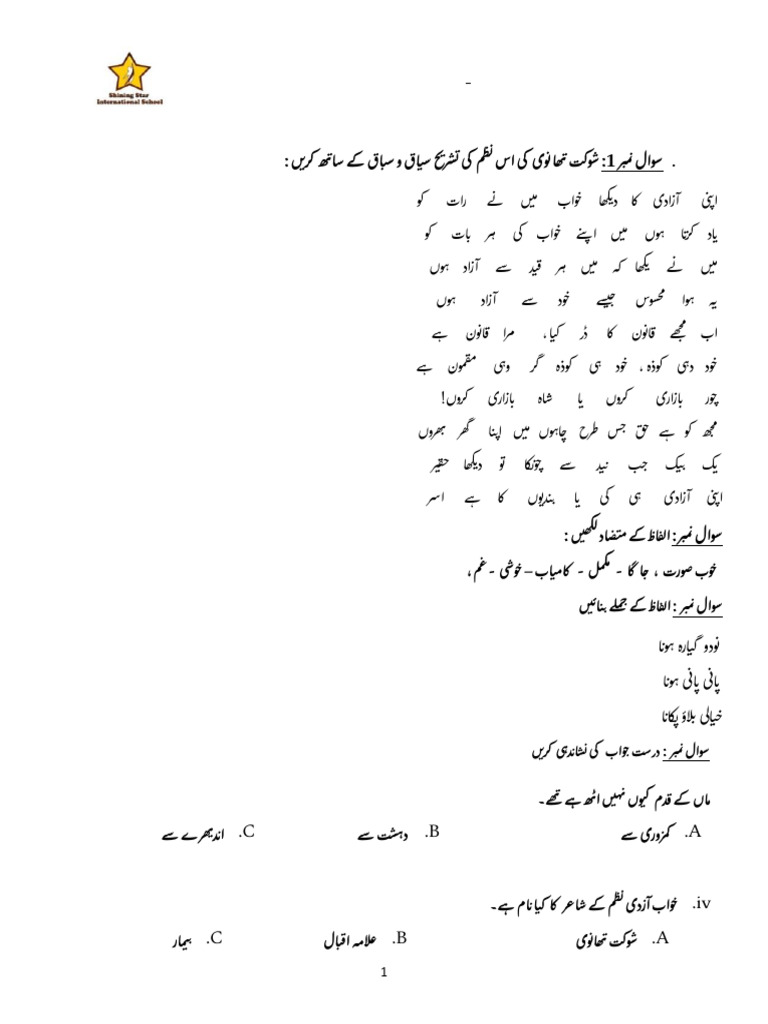 Shining Star
International School
-
. سوال نمبر 1: شوکت تھانوی کی اس نظم کی تشریح سیاق و سباق کے ساتھ کریں :
اپنی آزادی کا دیکھا خواب میں نے رات کو
یاد کرتا ہوں میں اپنے خواب کی ہر بات کو
میں نے یکھا کہ میں ہر قید سے آزاد ہوں
یہ ہوا محسوس جیسے خود سے آزاد ہوں
اب مجھے قانون کا ڈر کیا، مرا قانون ہے
خود دہی کوذہ، خود ہی کوذہ گر وہی مقمون ہے
چور بازاری کروں یا شاہ بازاری کروں!
مجھ کو ہے حق جس طرح چاہوں میں اپنا گھر بھروں
یک بیک جب نید سے چونکا تو دیکھا حقیر
اپنی آزادی ہی کی یا بندیوں کا ہے اسر
سوال نمبر : الفاظ کے متضاد لکھیں :
خوب صورت ، جاگا - مکمل - کامیاب – خوشی - غم ،
سوال نمبر : الفاظ کے جملے بنائیں
نودو گیارہ ہونا
پانی پانی ہونا
خیالی بلاؤ پکانا
سوال نمبر : درست جواب کی نشاندہی کریں
ماں کے قدم کیوں نہیں اٹھ ہے تھے۔
A. کمزوری سے B. دہشت سے C. اندیھرے سے
iv. خواب آزدی نظم کے شاعر کا کیا نام ہے۔
A. شوکت تھانوی B. علامہ اقبال C. بیمار
1